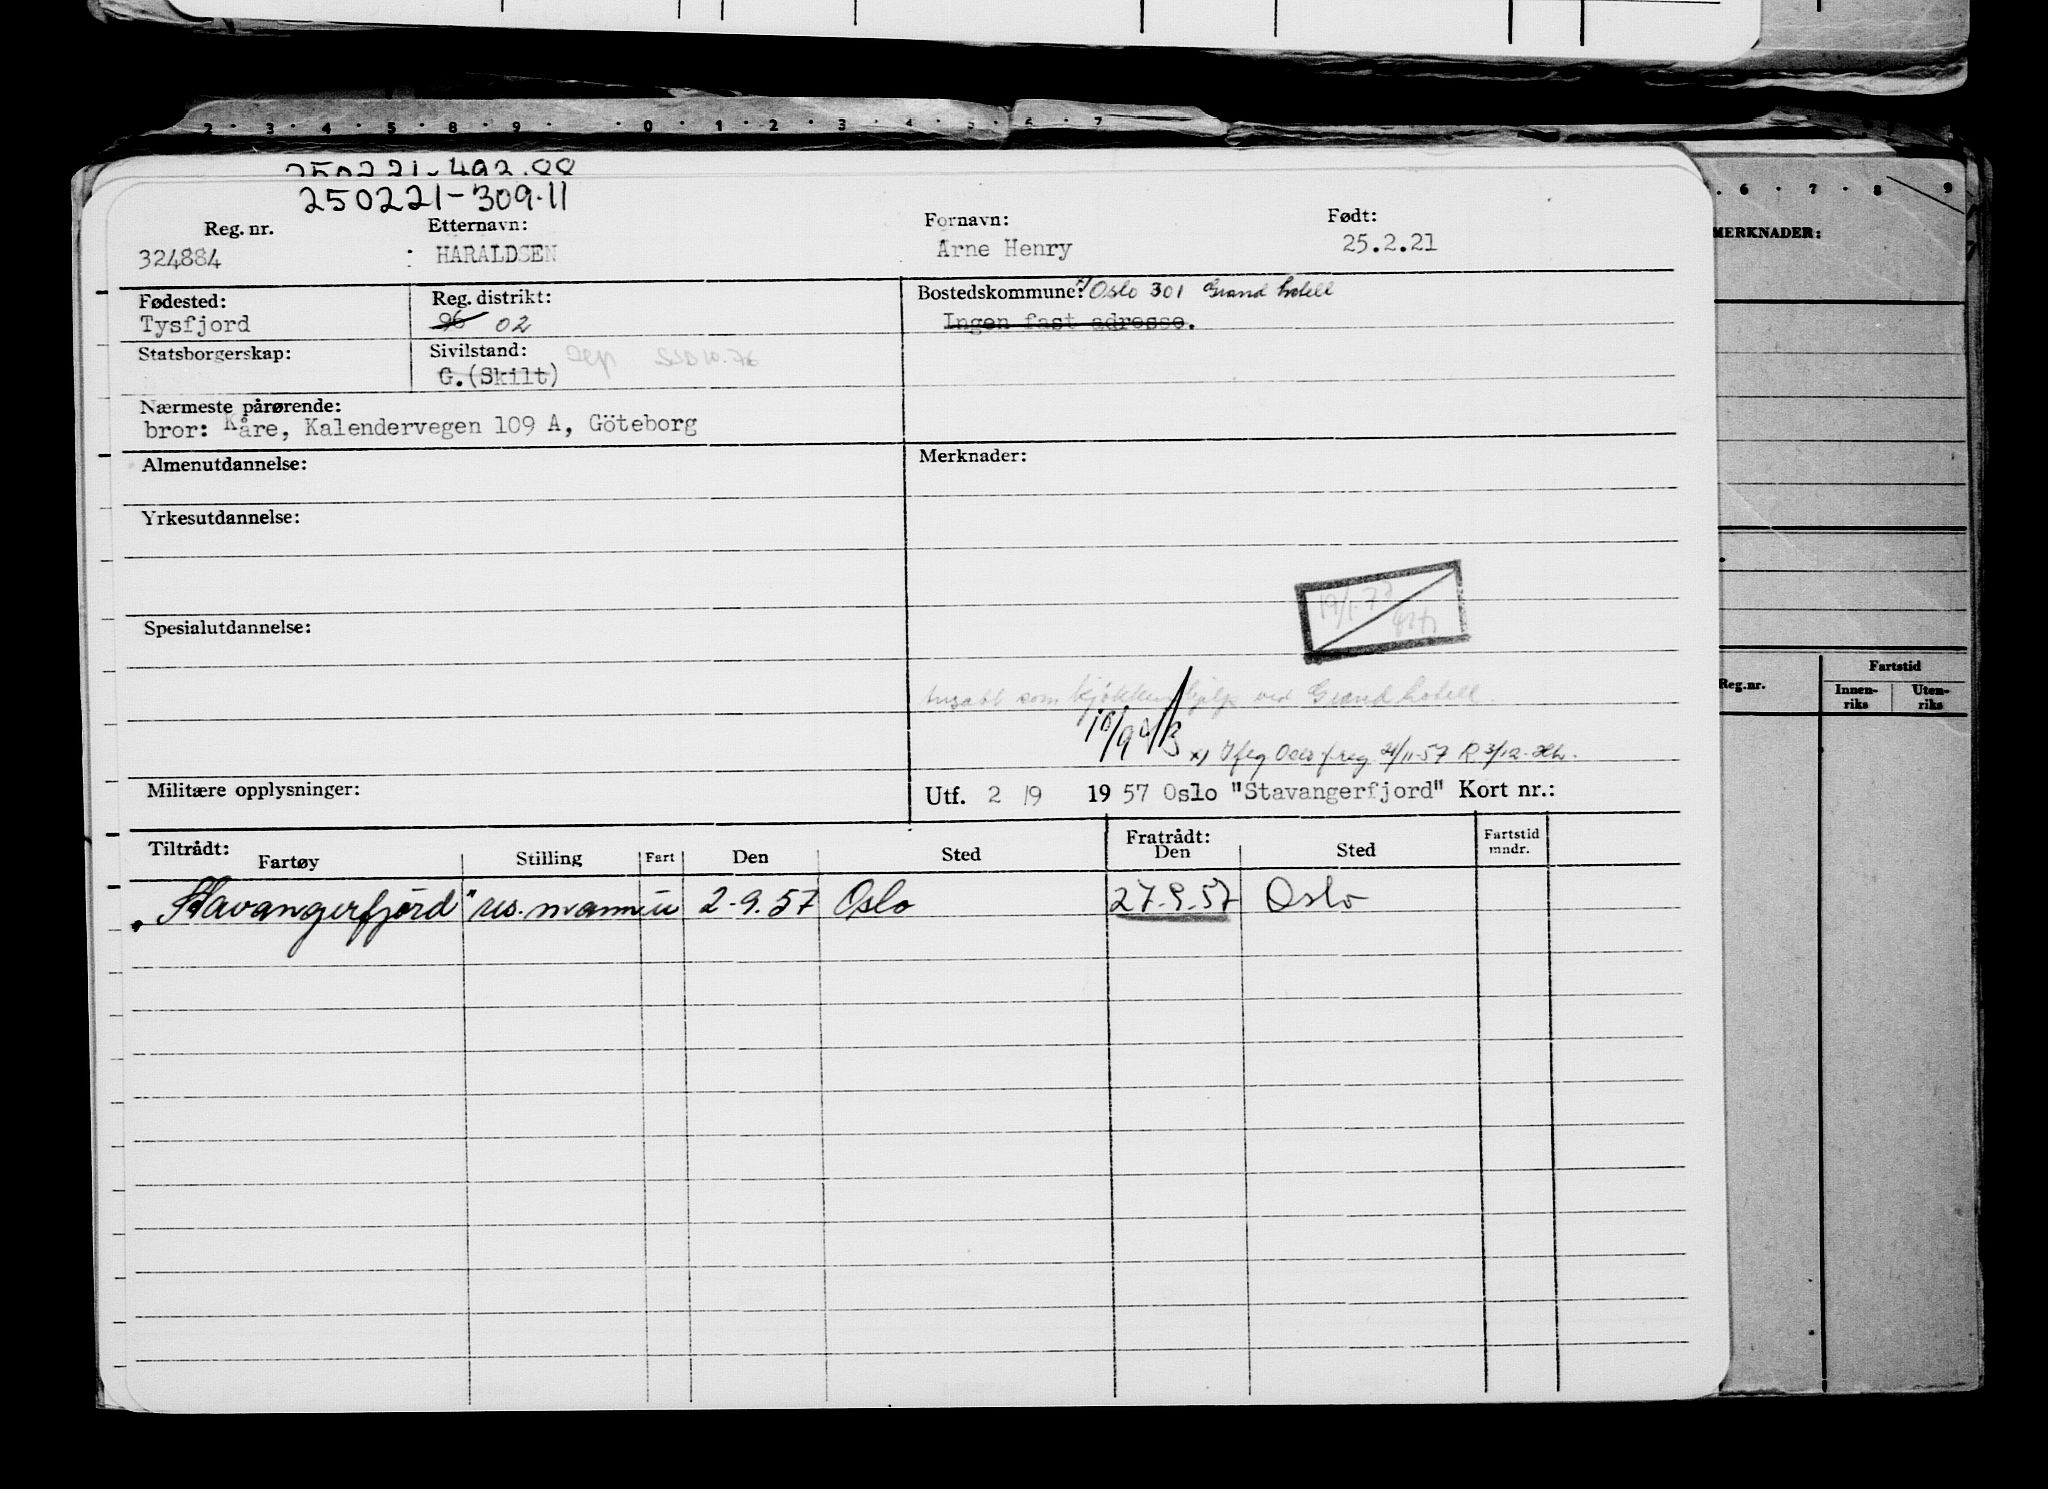 2 · 3 · 4 · 5 · 8 · 9 · 0 · 1 · 2 · 3 · 4 · 5 · 6 · 7
250221-492.88
250221-309.11
Reg. nr. Etternavn: Fornavn: Født:
324884 : HARALDSEN Arne Henry 25.2.21
Fødested: Reg. distrikt: Bostedskommune: x) Oslo 301 Grand hotell
Tysfjord 96 02 Ingen fast adresse.
Statsborgerskap: Sivilstand:
G. (Skilt)
Nærmeste pårørende:
bror: Kåre, Kalendervegen 109 A, Göteborg
Almenutdannelse: Merknader:
Yrkesutdannelse:
19/1-73
Spesialutdannelse:
ansatt som kjøkkenhjelp ved Grand hotell.
x) Oslo f.reg. 21/11-57 R 3/12
Militære opplysninger: Utf. 2 /9 19 57 Oslo "Stavangerfjord" Kort nr.:
Tiltrådt: Fratrådt: Fartstid mndr.
Fartøy Stilling Fart Den Sted Den Sted
"Stavangerfjord" res. mann u 2-9.57 Oslo 27-9.57 Oslo
6 · 7 · 8 9
MERKNADER:
Reg.nr. Fartstid
Innen-riks Uten-riks